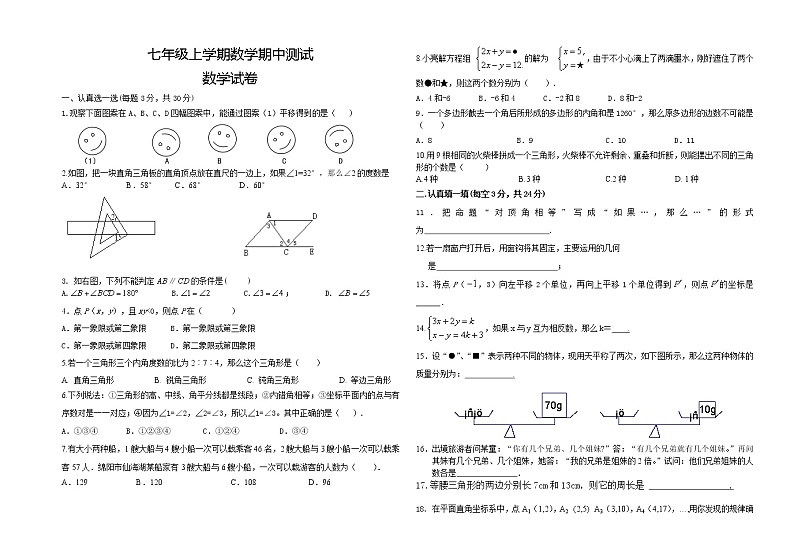 七年级上学期数学期中测试
数学试卷
一、认真选一选(每题3分，共30分)
1.观察下面图案在A、B、C、D四幅图案中，能通过图案（1）平移得到的是（ ）
(1) A B C D
2.如图，把一块直角三角板的直角顶点放在直尺的一边上，如果∠1=32°，那么∠2的度数是
A．32° B．58° C．68° D．60°
2
1
A D
3 1
2 4 5
B C E
3．如右图，下列不能判定AB∥CD的条件是( )
A.∠B+∠BCD=180° B.∠1=∠2 C.∠3=∠4； D. ∠B=∠5
4．点P（x，y），且xy<0，则点P在（ ）
A．第一象限或第二象限 B．第一象限或第三象限
C．第一象限或第四象限 D．第二象限或第四象限
5.若一个三角形三个内角度数的比为2︰7︰4，那么这个三角形是（ ）
A. 直角三角形 B. 锐角三角形 C. 钝角三角形 D. 等边三角形
6.下列说法：①三角形的高、中线、角平分线都是线段；②内错角相等；③坐标平面内的点与有
序数对是一一对应；④因为∠1=∠2，∠2=∠3，所以∠1=∠3。其中正确的是（ ）．
A．①③④ B．①②③④ C．①②④ D．③④
7.有大小两种船，1艘大船与4艘小船一次可以载乘客46名，2艘大船与3艘小船一次可以载乘
客57人．绵阳市仙海湖某船家有3艘大船与6艘小船，一次可以载游客的人数为（ ）．
A．129 B．120 C．108 D．96
8小亮解方程组 {2x+y=● 2x-y=12. 的解为 {x=5, y=★ ，由于不小心滴上了两滴墨水，刚好遮住了两个
数●和★，则这两个数分别为（ ）．
A．4和-6 B．-6和4 C．-2和8 D．8和-2
9．一个多边形截去一个角后所形成的多边形的内角和是1260°，那么原多边形的边数不可能是
（ ）
A．8 B．9 C．10 D．11
10.用9根相同的火柴棒拼成一个三角形，火柴棒不允许剩余、重叠和折断，则能摆出不同的三角
形的个数是（ ）
A.4种 B.3种 C.2种 D.1种
二.认真填一填(每空3分，共24分)
11．把命题“对顶角相等”写成“如果…，那么…”的形式
为 .
12.若一扇窗户打开后，用窗钩将其固定，主要运用的几何
是 ；
13．将点P（-1，3）向左平移2个单位，再向上平移1个单位得到P′，则点P′的坐标是
.
14.{3x+2y=k x-y=4k+3 ，如果x与y互为相反数，那么k=
15．设“●”、“■”表示两种不同的物体，现用天平称了两次，如下图所示，那么这两种物体的
质量分别为：
70g 10g
16．出境旅游者问某童：“你有几个兄弟、几个姐妹？”答：“有几个兄弟就有几个姐妹。”再问
其妹有几个兄弟、几个姐妹，她答：“我的兄弟是姐妹的2倍。”试问：他们兄弟姐妹的人
数各是 .
17.等腰三角形的两边分别长7cm和13cm，则它的周长是 .
18．在平面直角坐标系中，点A₁(1,2)，A₂ (2,5) A₃(3,10)，A₄(4,17)，…,用你发现的规律确